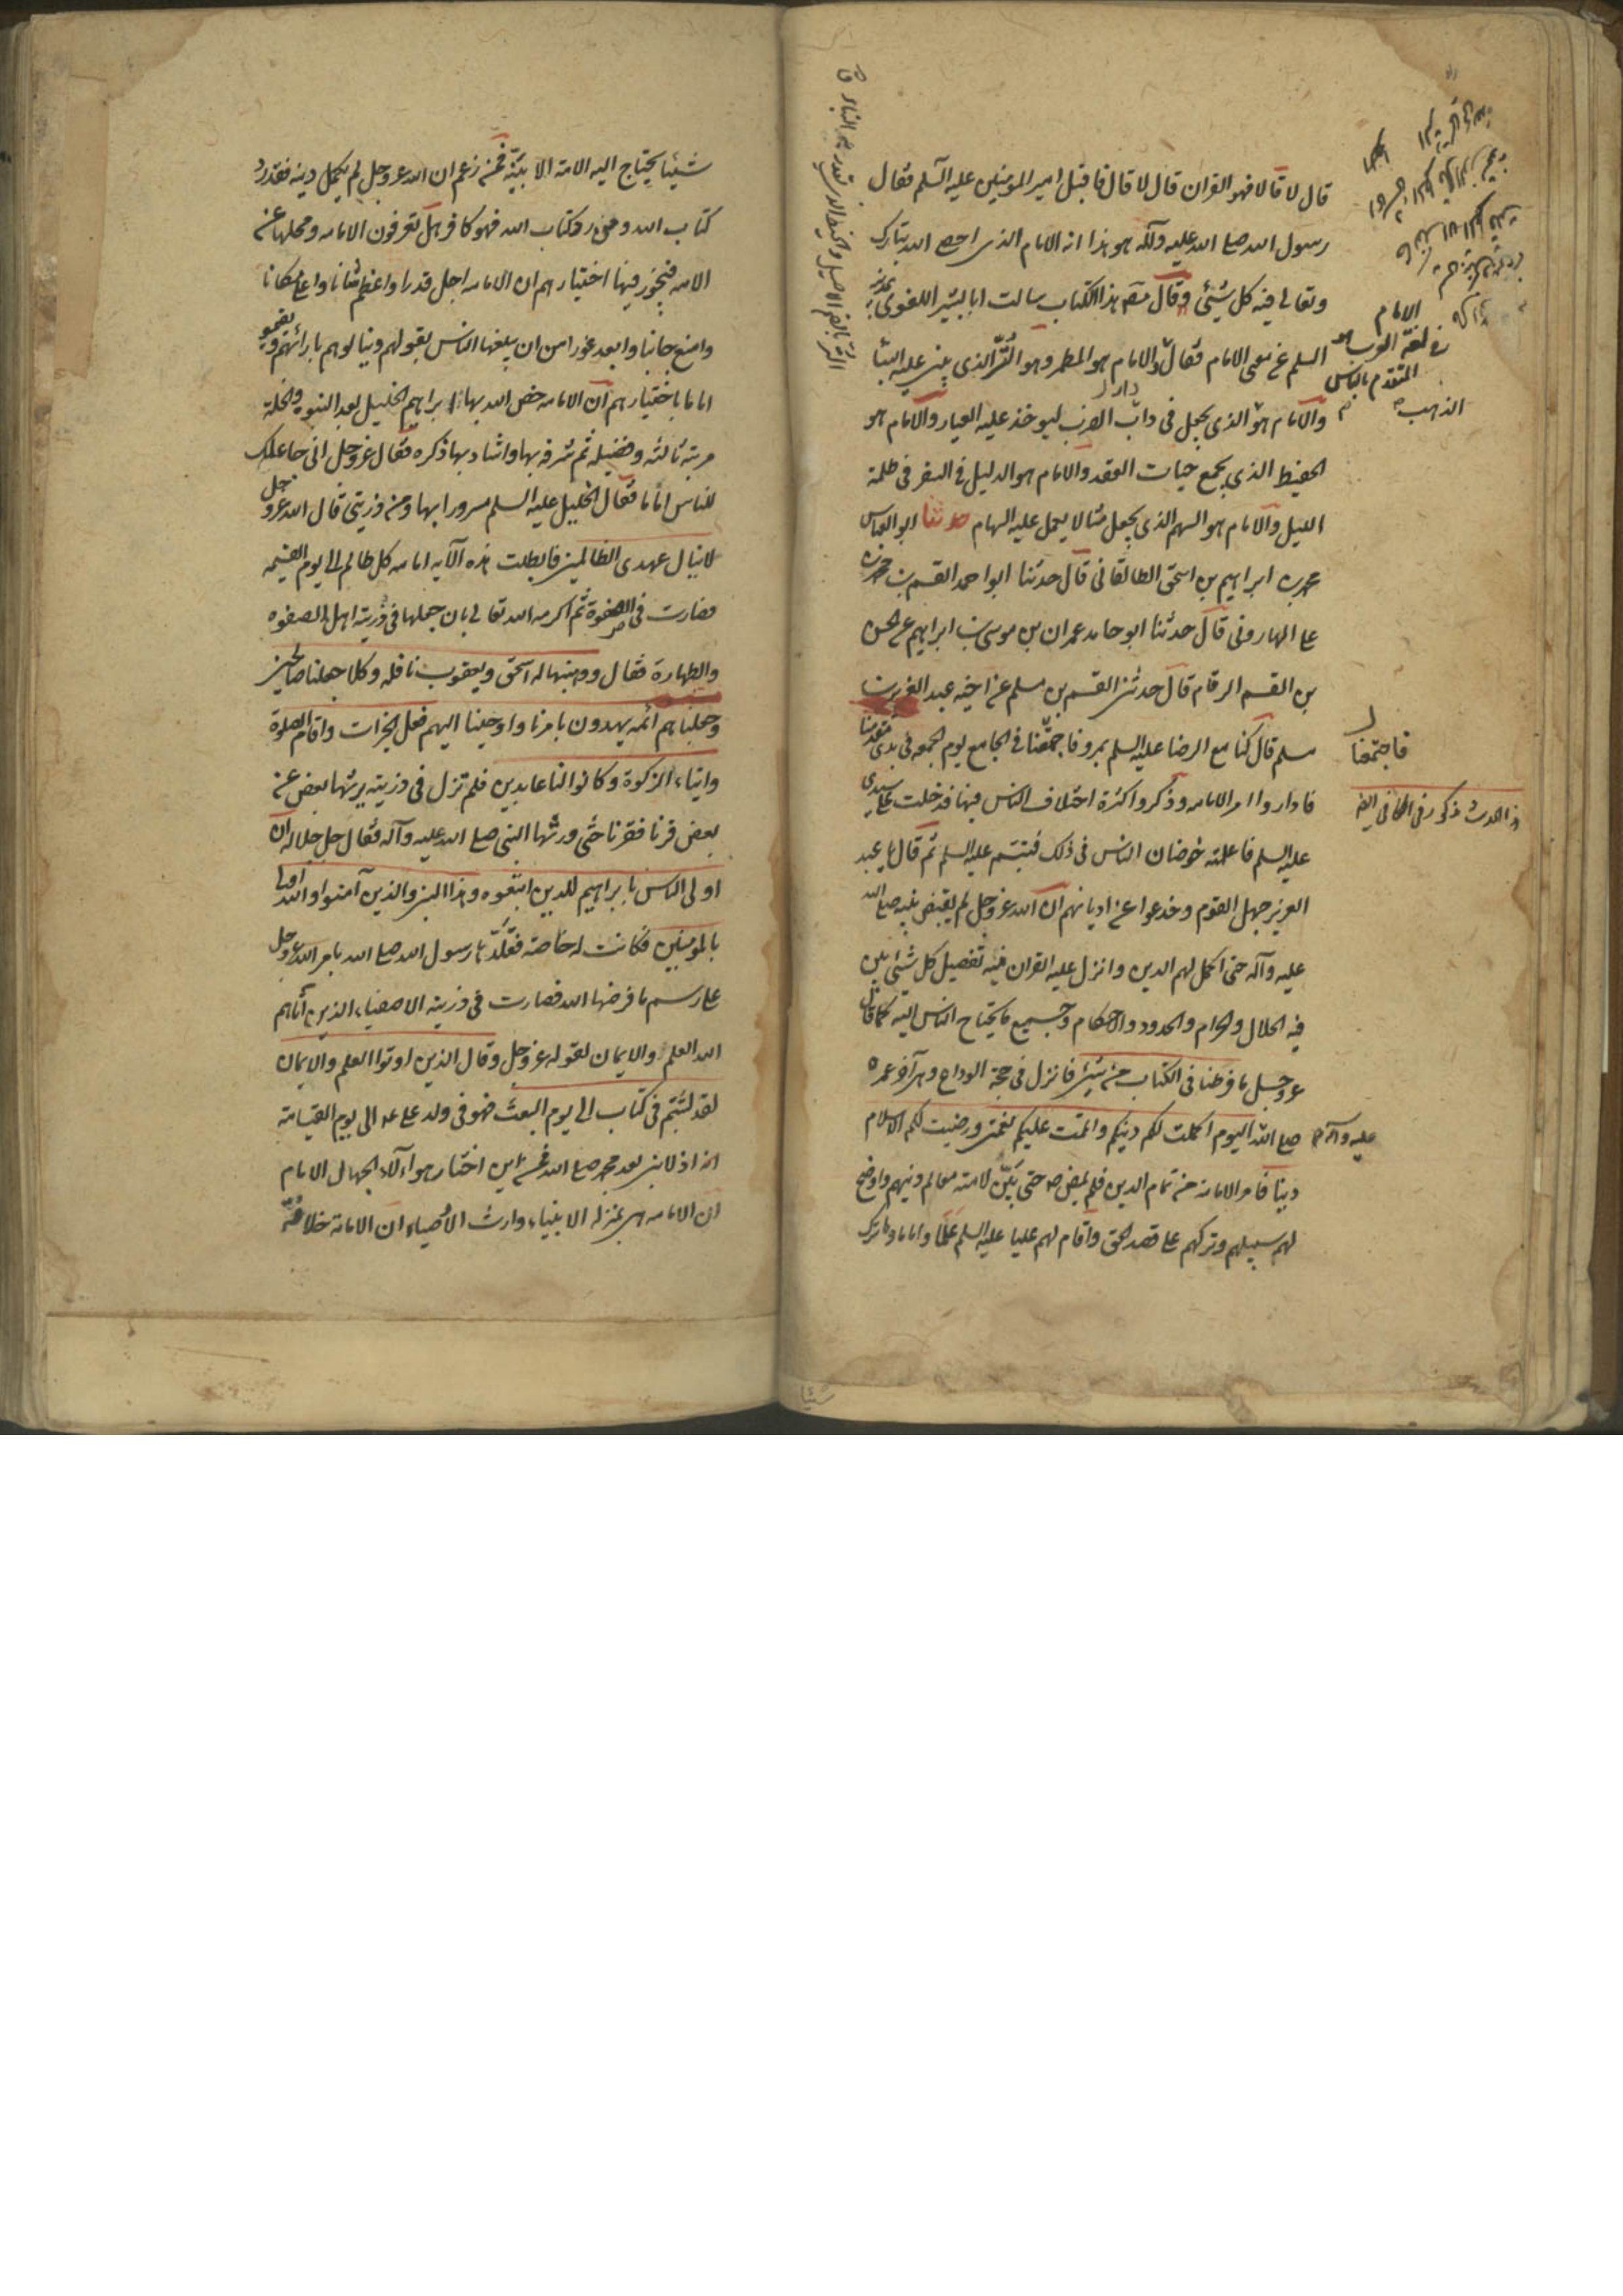 قال لا قالا فهو القرآن قال لا قال فاقبل امير المؤمنين عليه السلم فقال
رسول الله صلى الله عليه وآله هو هذا انه الامام الذى احصى الله تبارك
وتعالى فيه كل شيئ وقال مصنف هذا الكتاب سالت ابا بشر اللغوى بمدينة
السلم عن معنى الامام فقال الامام هو المطمر وهو التر الذى يبنى عليه البنا
والامام هو الذى يجعل فى دار الضرب ليوخذ عليه العيار والامام هو
الخيط الذى يجمع حبات العقد والامام هو الدليل فى السفر فى ظلمة
الليل والامام هو السهم الذى يجعل مثالا يعمل عليه السهام حدثنا ابو العباس
محمد بن ابراهيم بن اسحق الطالقانى قال حدثنا ابو احمد القسم بن محمد بن
على الهارونى قال حدثنا ابو حامد عمران بن موسى بن ابراهيم عن الحسن
بن القسم الرقام قال حدثنى القسم بن مسلم عن اخيه عبد العزيز بن
مسلم قال كنا مع الرضا عليه السلم بمرو فاجتمعنا فى الجامع يوم الجمعه فى بدى مقدمنا
فاداروا امر الامامه وذكروا كثرة اختلاف الناس فيها فدخلت على سيدى
عليه السلم فاعلمته خوضان الناس فى ذلك فتبسم عليه السلم ثم قال يا عبد
العزيز جهل القوم وخدعوا عن اديانهم ان الله عز وجل لم يقبض نبيه صلى الله
عليه وآله حتى اكمل لهم الدين وانزل عليه القران فيه تفصيل كل شيئ بين
فيه الحلال والحرام والحدود والاحكام وجميع ما يحتاج الناس اليه كملا فقال
عز وجل ما فرطنا فى الكتاب من شيئ فانزل فى حجة الوداع وهى آخر عمره
صلى الله عليه وآله اليوم اكملت لكم دينكم واتممت عليكم نعمتى ورضيت لكم الاسلام
دينا فامر الامامة من تمام الدين فلم يمض صه حتى بين لامته معالم دينهم واوضح
لهم سبيلهم وتركهم على قصد الحق واقام لهم عليا عليه السلم علما واماما وما ترك
الامام
فى لغة العرب هو
المتقدم بالناس
الذهب
فاجتمعنا
هذا الحديث مذكور فى الكافى ايضا
شيئا
شيئا يحتاج اليه الامة الا بينه فمن زعم ان الله عز وجل لم يكمل دينه فقد رد
كتاب الله ومن رد كتاب الله فهو كافر هل تعرفون الامامه ومحلها من
الامه فيجوز فيها اختيارهم ان الامامه اجل قدرا واعظم شانا واعلى مكانا
وامنع جانبا وابعد غورا من ان يبلغها الناس بعقولهم او ينالوهم بارائهم او يقيموا
اماما باختيارهم ان الامامه خص الله بها ابراهيم الخليل بعد النبوه والخلة
مرتبة ثالثه وفضيله شرفه بها واشاد بها ذكره فقال عز وجل انى جاعلك
للناس اماما فقال الخليل عليه السلم سرورا بها ومن ذريتى قال الله عز وجل
لا ينال عهدى الظالمين فابطلت هذه الآيه امامه كل ظالم الى يوم القيمه
فصارت فى الصفوة ثم اكرمه الله تعالى بان جعلها فى ذريته اهل الصفوه
والطهارة فقال ووهبنا له اسحق ويعقوب نافله وكلا جعلنا صالحين
وجعلناهم ائمه يهدون بامرنا واوحينا اليهم فعل الخيرات واقام الصلوة
وايتاء الزكوة وكانوا لنا عابدين فلم تزل فى ذريته يرثها بعض عن
بعض قرنا فقرنا حتى ورثها النبى صلى الله عليه وآله فقال جل جلاله ان
اولى الناس بابراهيم للذين اتبعوه وهذا النبى والذين آمنوا والله ولى
المؤمنين فكانت له خاصة فقلدها رسول الله صلى الله بامر الله عز وجل
على رسم ما فرضها الله فصارت فى ذريته الاصفياء الذين آتاهم
الله العلم والايمان لقوله عز وجل وقال الذين اوتوا العلم والايمان
لقد لبثتم فى كتاب الى يوم البعث فهو فى ولد على عه الى يوم القيامة
اذ لا نبى بعد محمد صلى الله فمن اين اختار هؤلاء الجهال الامام
ان الامامه هى منزلة الانبياء وارث الاوصياء ان الامامة خلافة